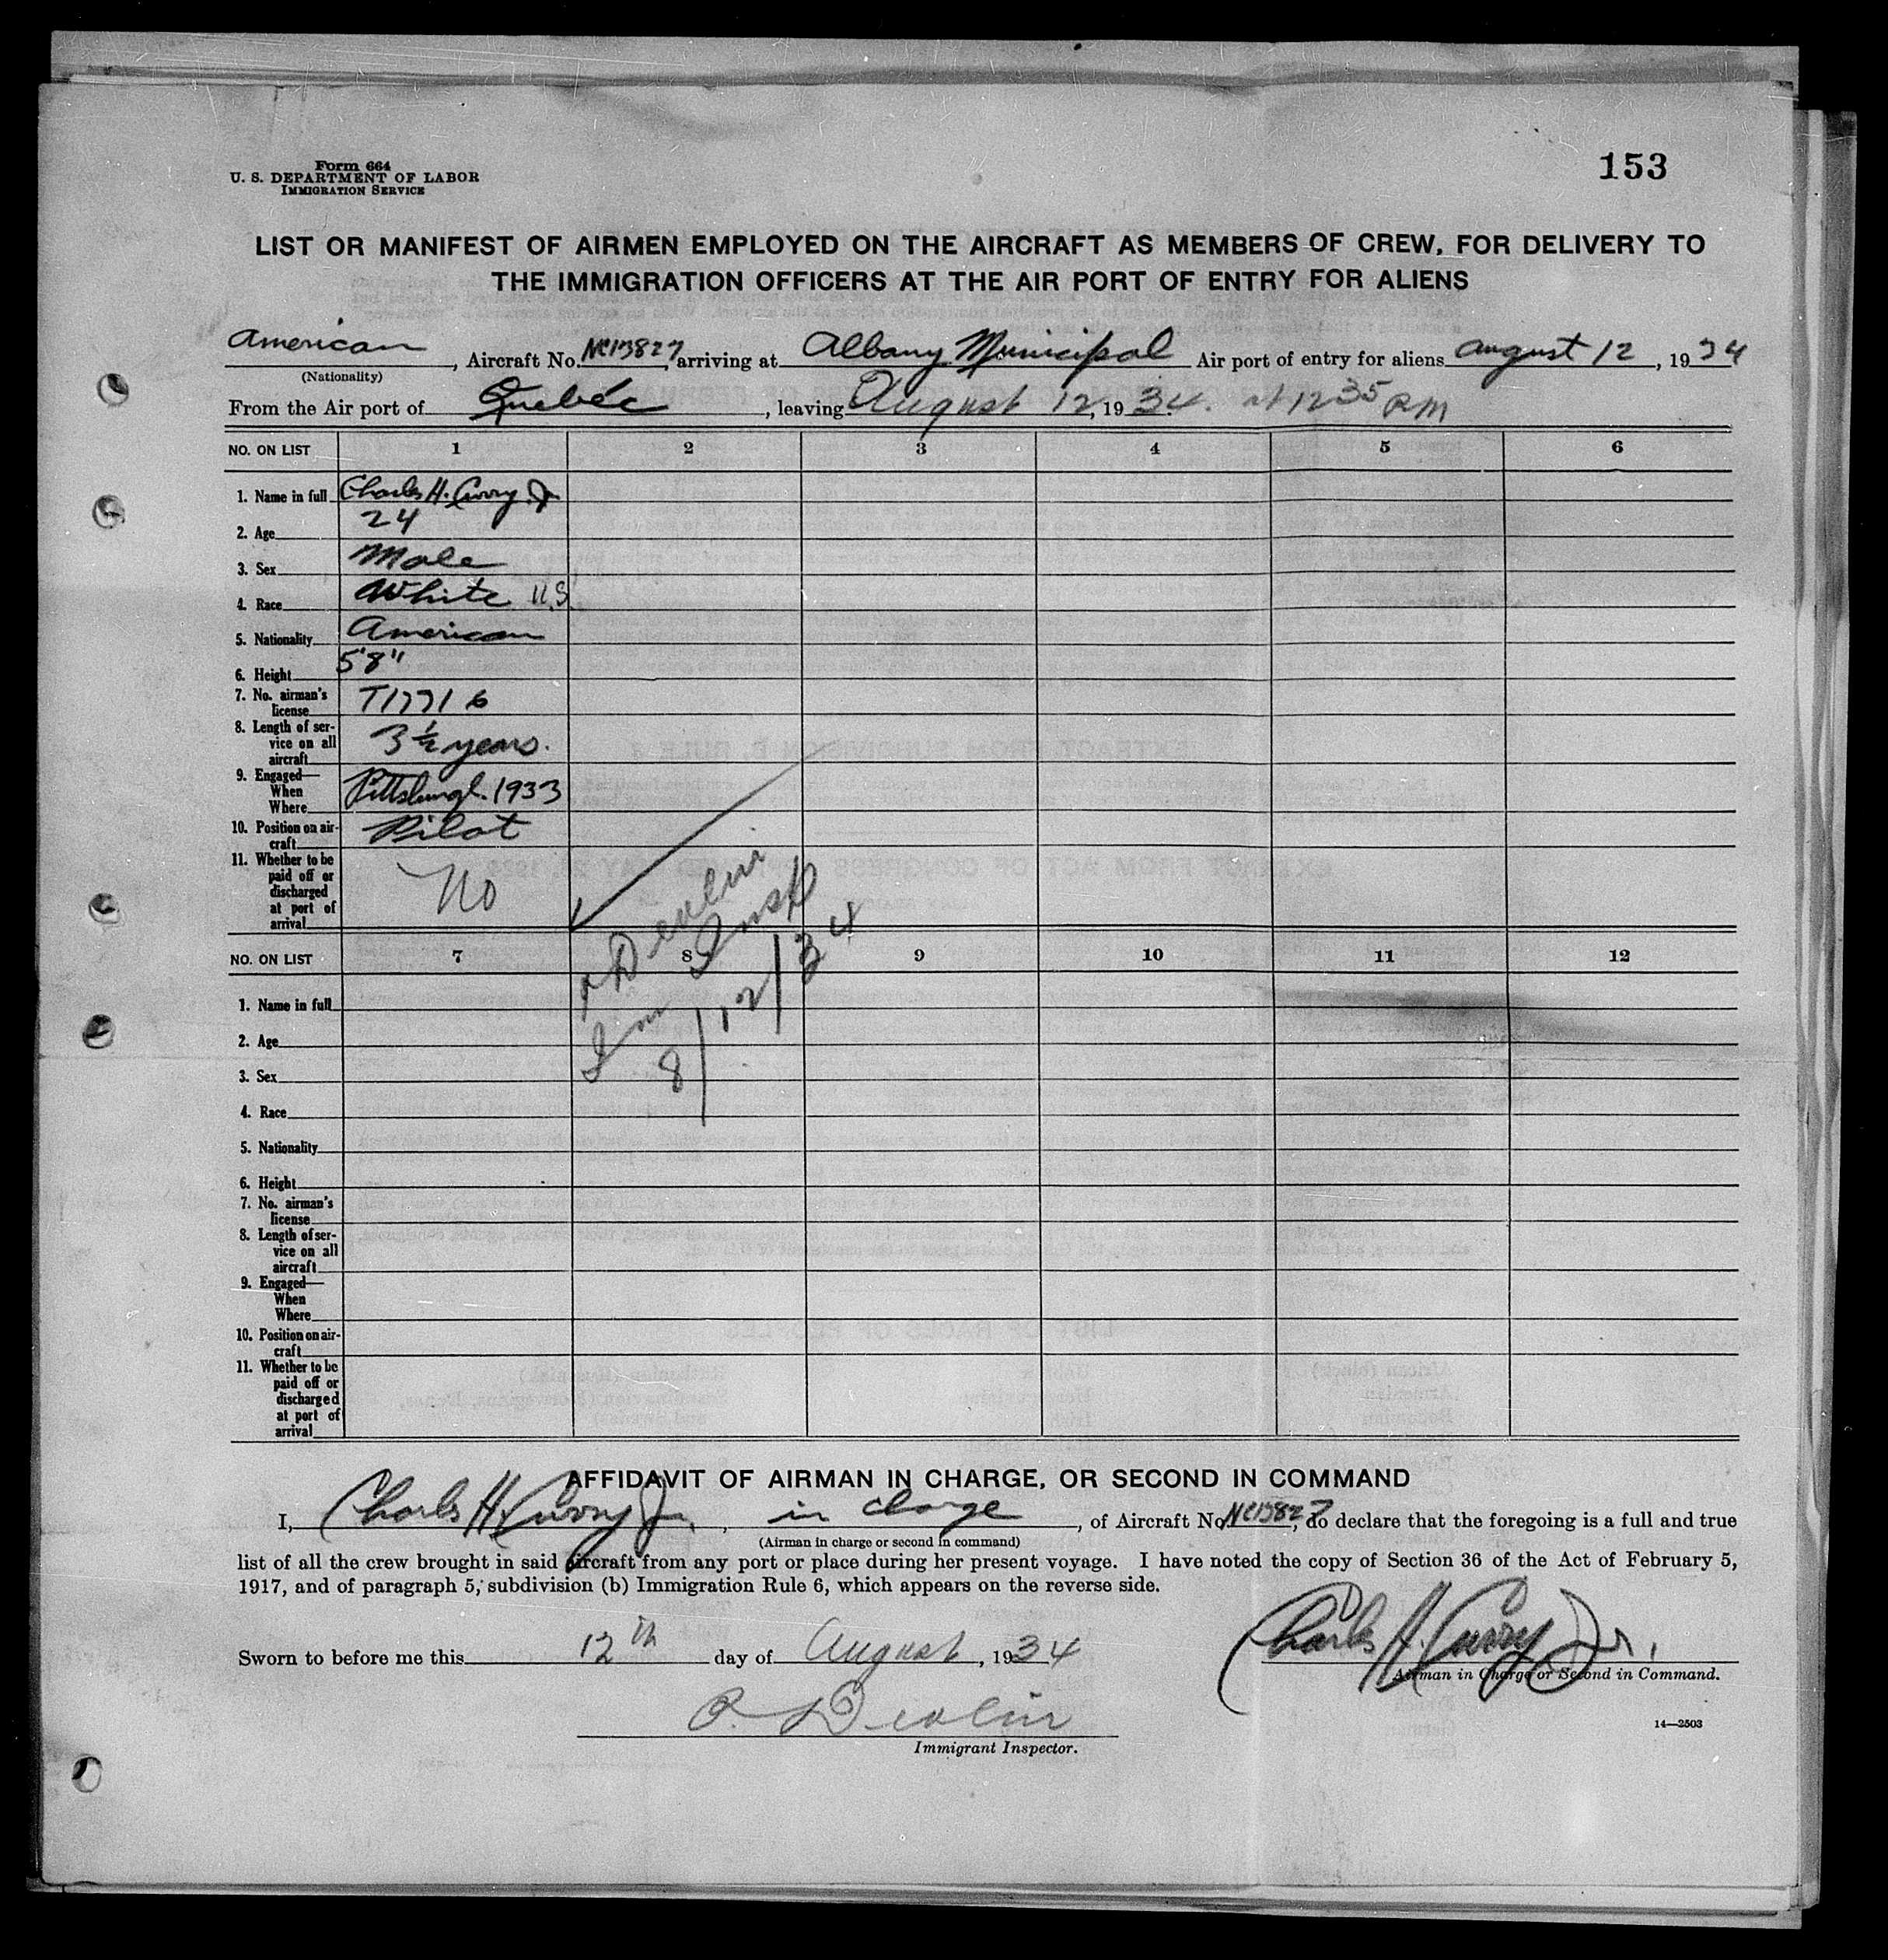 Form 664
U. S. DEPARTMENT OF LABOR
IMMIGRATION SERVICE
153
LIST OR MANIFEST OF AIRMEN EMPLOYED ON THE AIRCRAFT AS MEMBERS OF CREW, FOR DELIVERY TO
THE IMMIGRATION OFFICERS AT THE AIR PORT OF ENTRY FOR ALIENS
American, Aircraft No. NC13827, arriving at Albany Municipal Air port of entry for aliens August 12, 1934
(Nationality)
From the Air port of Quebéc, leaving August 12, 1934. at 12 35 PM
NO. ON LIST 1 2 3 4 5 6
1. Name in full Charles H. Curry Jr
2. Age 24
3. Sex Male
4. Race White U.S.
5. Nationality American
6. Height 5'8"
7. No. airman's
license T17716
8. Length of ser-
vice on all
aircraft 3 1/2 years.
9. Engaged—
When
Where Pittsburgh. 1933
10. Position on air-
craft Pilot
11. Whether to be
paid off or
discharged
at port of
arrival No
NO. ON LIST 7 8 9 10 11 12
P Devlin
Imm Insp
8/12/34
1. Name in full
2. Age
3. Sex
4. Race
5. Nationality
6. Height
7. No. airman's
license
8. Length of ser-
vice on all
aircraft
9. Engaged—
When
Where
10. Position on air-
craft
11. Whether to be
paid off or
discharged
at port of
arrival
AFFIDAVIT OF AIRMAN IN CHARGE, OR SECOND IN COMMAND
I, Charles H. Curry Jr., in charge, of Aircraft No. NC13827, do declare that the foregoing is a full and true
(Airman in charge or second in command)
list of all the crew brought in said aircraft from any port or place during her present voyage. I have noted the copy of Section 36 of the Act of February 5,
1917, and of paragraph 5, subdivision (b) Immigration Rule 6, which appears on the reverse side.
Sworn to before me this 12th day of August, 1934
Charles H. Curry Jr.
Airman in Charge or Second in Command.
P. Devlin
Immigrant Inspector.
14—2503